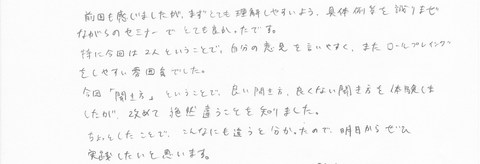 前回も感じましたが、まずとても理解しやすいよう、具体例等を織りまぜ
ながらのセミナーでとても良かったです。
特に今回は2人ということで、自分の意見を言いやすく、またロールプレイングも
しやすい雰囲気でした。
今回「聞き方」ということで、良い聞き方、良くない聞き方を体験しま
したが、改めて全然違うことを知りました。
ちょっとしたことで、こんなにも違うと分かったので、明日からぜひ
実践したいと思います。